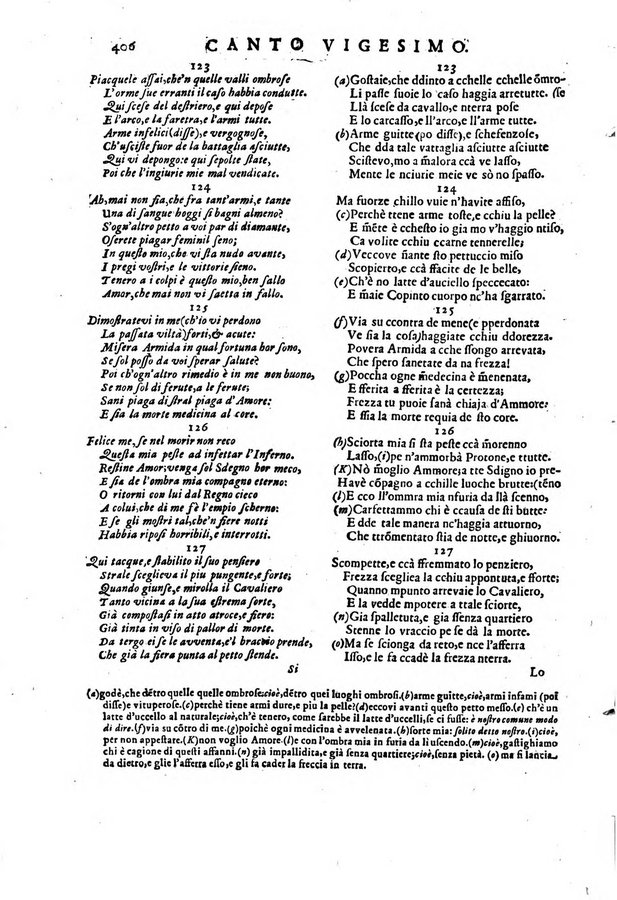 406 CANTO VIGESIMO.
123
Piacquele assai, che'n quelle valli ombrose
L'orme sue erranti il caso habbia condutte.
Qui scese del destriero, e qui depose
E l'arco, e la faretra, e l'armi tutte.
Arme infelici (disse) e vergognose,
Ch'usciste fuor de la battaglia asciutte,
Qui vi depongo: e qui sepolte state,
Poi che l'ingiurie mie mal vendicate.
124
Ah, mai non fia, che fra tant'armi, e tante
Una di sangue hoggi si bagni almeno?
S'ogn'altro petto a voi par di diamante,
Oserete piagar feminil seno;
In questo mio, che vi stà nudo avante,
I pregi vostri, e le vittorie sieno.
Tenero a i colpi è questo mio, ben sallo
Amor, che mai non vi saetta in fallo.
125
Dimostratevi in me (ch'io vi perdono
La passata viltà) forti, & acute:
Misera Armida in qual fortuna hor sono,
Se sol posso da voi sperar salute?
Poi ch'ogn'altro rimedio è in me non buono,
Se non sol di ferute, a le ferute;
Sani piaga di stral piaga d'Amore:
E sia la morte medicina al core.
126
Felice me, se nel morir non reco
Questa mia peste ad infettar l'Inferno.
Restine Amor; venga sol Sdegno hor meco,
E sia de l'ombra mia compagno eterno:
O ritorni con lui dal Regno cieco
A colui, che di me fè l'empio scherno:
E se gli mostri tal, che'n fiere notti
Habbia riposi horribili, e interrotti.
127
Qui tacque, e stabilito il suo pensiero
Strale sceglieva il piu pungente, e forte;
Quando giunse, e mirolla il Cavaliero
Tanto vicina a la sua estrema sorte,
Già compostasi in atto atroce, e fiero:
Già tinta in viso di pallor di morte.
Da tergo ei se le avventa, e'l braccio prende,
Che già la fiera punta al petto stende.
Si
123
(a) Gostaie, che ddinto a cchelle cchelle õmro-
Li passe suoie lo caso haggia arretutte. (se
Llà scese da cavallo, e nterra pose
E lo carcasso, e ll'arco, e ll'arme tutte.
(b) Arme guitte (po disse), e schefenzose,
Che dda tale vattaglia asciutte asciutte
Scistevo, mo a m̃alora ccà ve lasso,
Mente le nciurie meie ve sò no spasso.
124
Ma fuorze chillo vuie n'havite affiso,
(c) Perchè ttene arme toste, e cchiu la pelle?
E m̃ẽte è cchesto io gia mo v'haggio ntiso,
Ca volite cchiu ccarne tennerelle;
(d) Veccove ñante sto pettuccio miso
Scopierto, e ccà ffacite de le belle,
(e) Ch'è no latte d'auciello speccecato:
E m̃aie Copinto cuorpo nc'ha sgarrato.
125
(f) Via su ccontra de mene (e pperdonata
Ve sia la cosa) haggiate cchiu ddorezza.
Povera Armida a cche ssongo arrevata,
Che spero sanetate da na frezza!
(g) Poccha ogne m̃edecina è m̃enenata,
E fferita a fferita è la certezza;
Frezza tu puoie sanà chiaja d'Ammore:
E ssia la morte requia de sto core.
126
(h) Sciorta mia si sta peste ccà m̃orenno
Lasso, (i) pe n'ammorbà Protone, e ttutte.
(K) Nò m̃oglio Ammore; a tte Sdigno io pre-
Have còpagno a cchille luoche brutte: (tẽno
(l) E cco ll'ommra mia nfuria da llà scenno,
(m) Carfettammo chi è ccausa de sti butte:
E dde tale manera nc'haggia attuorno,
Che ttrõmentato stia de notte, e ghiuorno.
127
Scompette, e ccà ffremmato lo penziero,
Frezza sceglica la cchiu appontuta, e fforte;
Quanno mpunto arrevaie lo Cavaliero,
E la vedde mpotere a ttale sciorte,
(n) Gia spalletuta, e gia senza quartiero
Stenne lo vraccio pe se dà la morte.
(o) Ma se scionga da reto, e nce l'afferra
Isso, e le fa ccadè la frezza nterra.
Lo
(a) godè, che dẽtro quelle quelle ombrose: cioè, dẽtro quei luoghi ombrosi. (b) arme guitte, cioè, armi infami (poi
disse) e vituperose. (c) perchè tiene armi dure, e piu la pelle? (d) eccovi avanti questo petto messo. (e) ch'è un
latte d'uccello al naturale; cioè, ch'è tenero, come sarebbe il latte d'uccelli, se ci fusse: è nostro comune modo
di dire. (f) via su cõtro di me. (g) poichè ogni medicina è avvelenata. (h) sorte mia: solito detto nostro. (i) cioè,
per non appestare. (K) non voglio Amore (l) e con l'ombra mia in furia da lì uscendo. (m) cioè, gastighiamo
chi è cagione di questi affanni. (n) già impallidita, e già senza quartiere; cioè, senza pietà. (o) ma si lancia
da dietro, e glie l'afferra esso, e gli fa cader la freccia in terra.